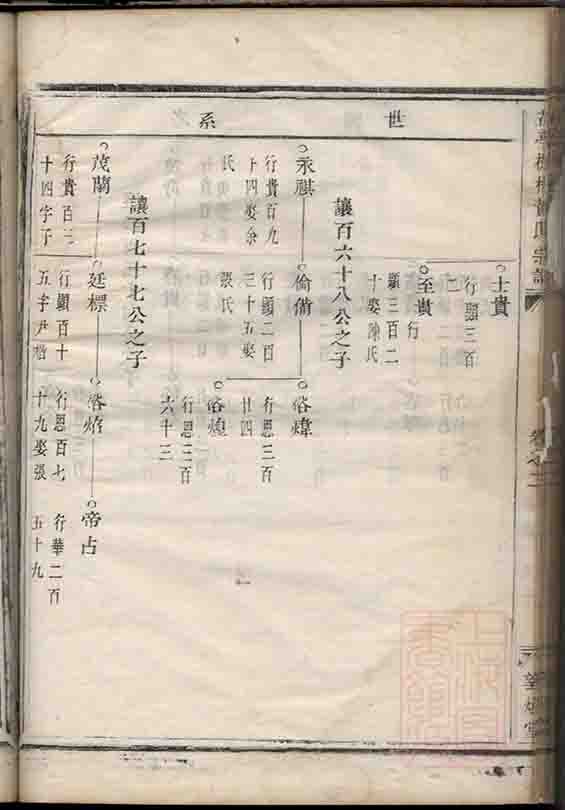 世系
士貴
行顯三百
二
至貴 行
顯三百二
十娶陳氏
讓百六十八公之子
永祺
行貴百九
十四娶余
氏
倫備
行顯二百
三十五娶
張氏
啓煒
行恩三百
廿四
啓煌
行恩三百
六十三
讓百七十七公之子
茂蘭
行貴百三
十四字子
廷標
行顯百十
五字尹楷
啓焰
行恩百七
十九娶張
帝占
行華二百
五十九
卷之二